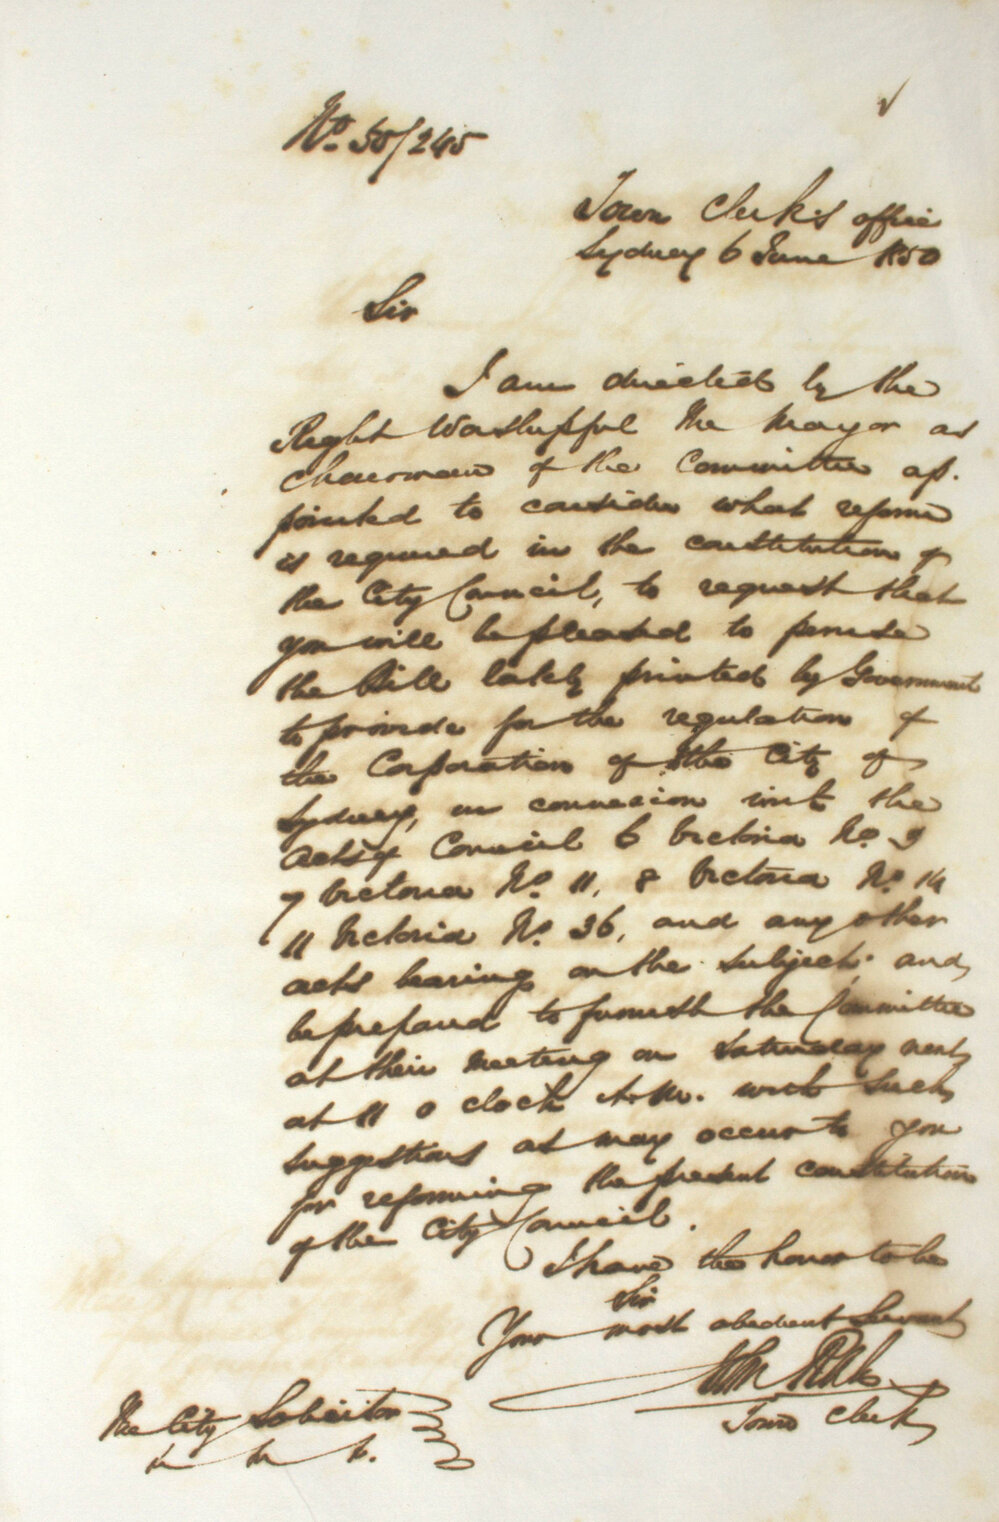 No. 50/245
Town Clerk's office
Sydney 6 June 1850
Sir
I am directed by the
Right Worshipful the Mayor as
Chairman of the Committee ap-
pointed to consider what reform
is required in the constitution of
the City Council, to request that
you will be pleased to peruse
the Bill lately printed by Government
to provide for the regulation of
the Corporation of the City of
Sydney, in connexion with the
acts of Council 6 Victoria No. 3
7 Victoria No. 11, 8 Victoria No. 14
11 Victoria No. 36, and any other
acts bearing on the subject and
be prepared to furnish the Committee
at their meeting on Saturday next
at 11 o clock A.M. with such
suggestions as may occur to you
for reforming the present constitution
of the City Council.
I have the honor to be
Sir
Your most obedient Servant
Town Clerk
The City Solicitor